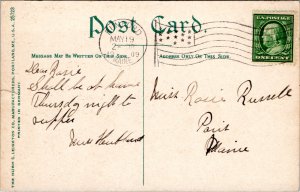 Post Card.
MESSAGE MAY BE WRITTEN ON THIS SIDE
ADDRESS ONLY ON THIS SIDE
MAY 19
U.S. POSTAGE
ONE CENT
Dear Rosie
Shall be at home
Thursday night to
supper
Miss Rosie Russell
Paris
Maine
THE HUGH C. LEIGHTON CO., MANUFACTURERS, PORTLAND, ME., U.S.A.
PRINTED IN GERMANY